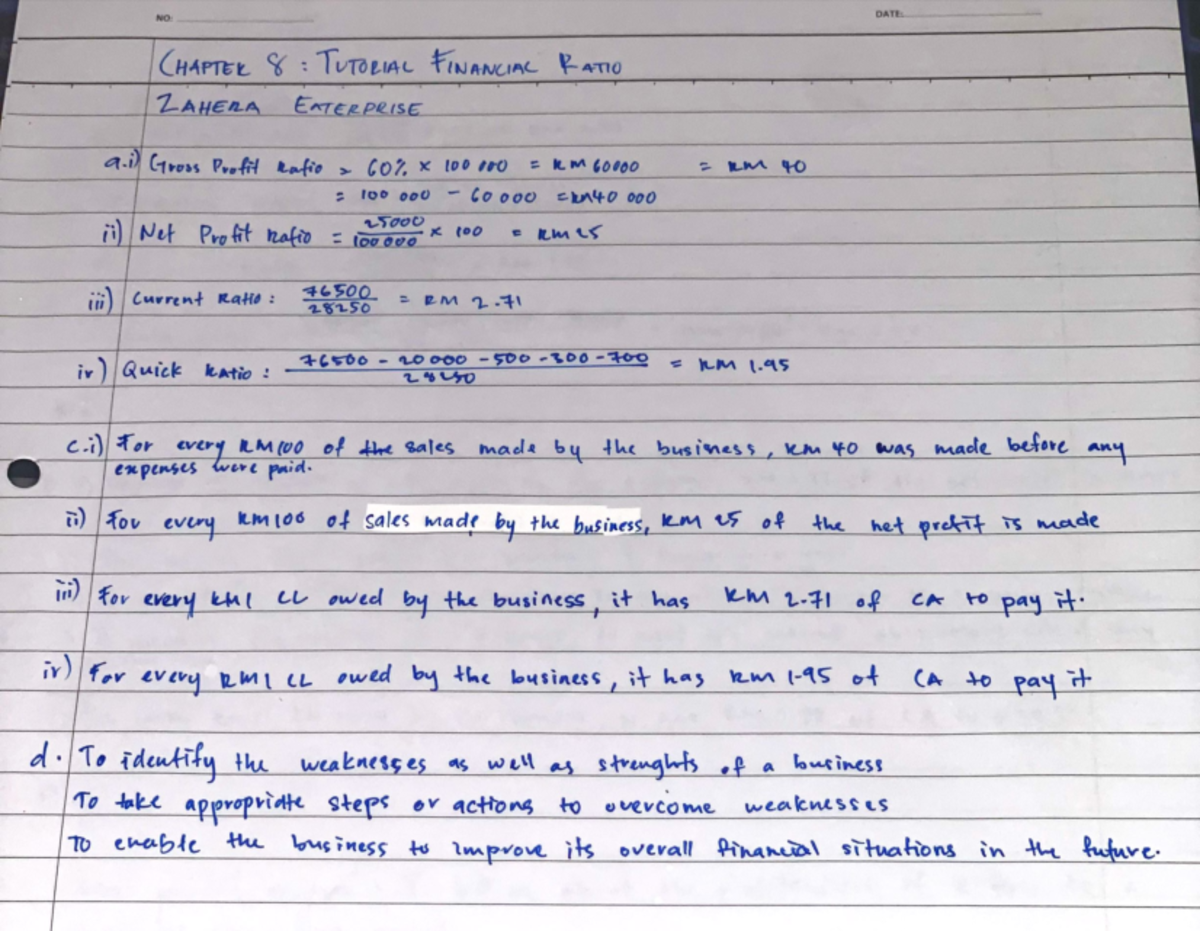 NO:
DATE:
CHAPTER 8 : TUTORIAL FINANCIAL RATIO
ZAHERA ENTERPRISE
a.i) Gross Profit Ratio = 60% × 100 000 = RM 60000 = RM 40
= 100 000 - 60 000 = RM40 000
ii) Net Profit Ratio = 25000/100 000 × 100 = RM 25
iii) Current Ratio : 76500/28250 = RM 2.71
iv) Quick Ratio : 76500 - 20000 - 500 - 300 - 700/28250 = RM 1.95
c.i) For every RM100 of the sales made by the business, RM 40 was made before any
expenses were paid.
ii) For every RM100 of sales made by the business, RM 25 of the net profit is made
iii) For every RM1 CL owed by the business, it has RM 2.71 of CA to pay it.
iv) For every RM1 CL owed by the business, it has RM 1.95 of CA to pay it
d. To identify the weaknesses as well as strenghts of a business
To take appropriate steps or actions to overcome weaknesses
To enable the business to improve its overall financial situations in the future.